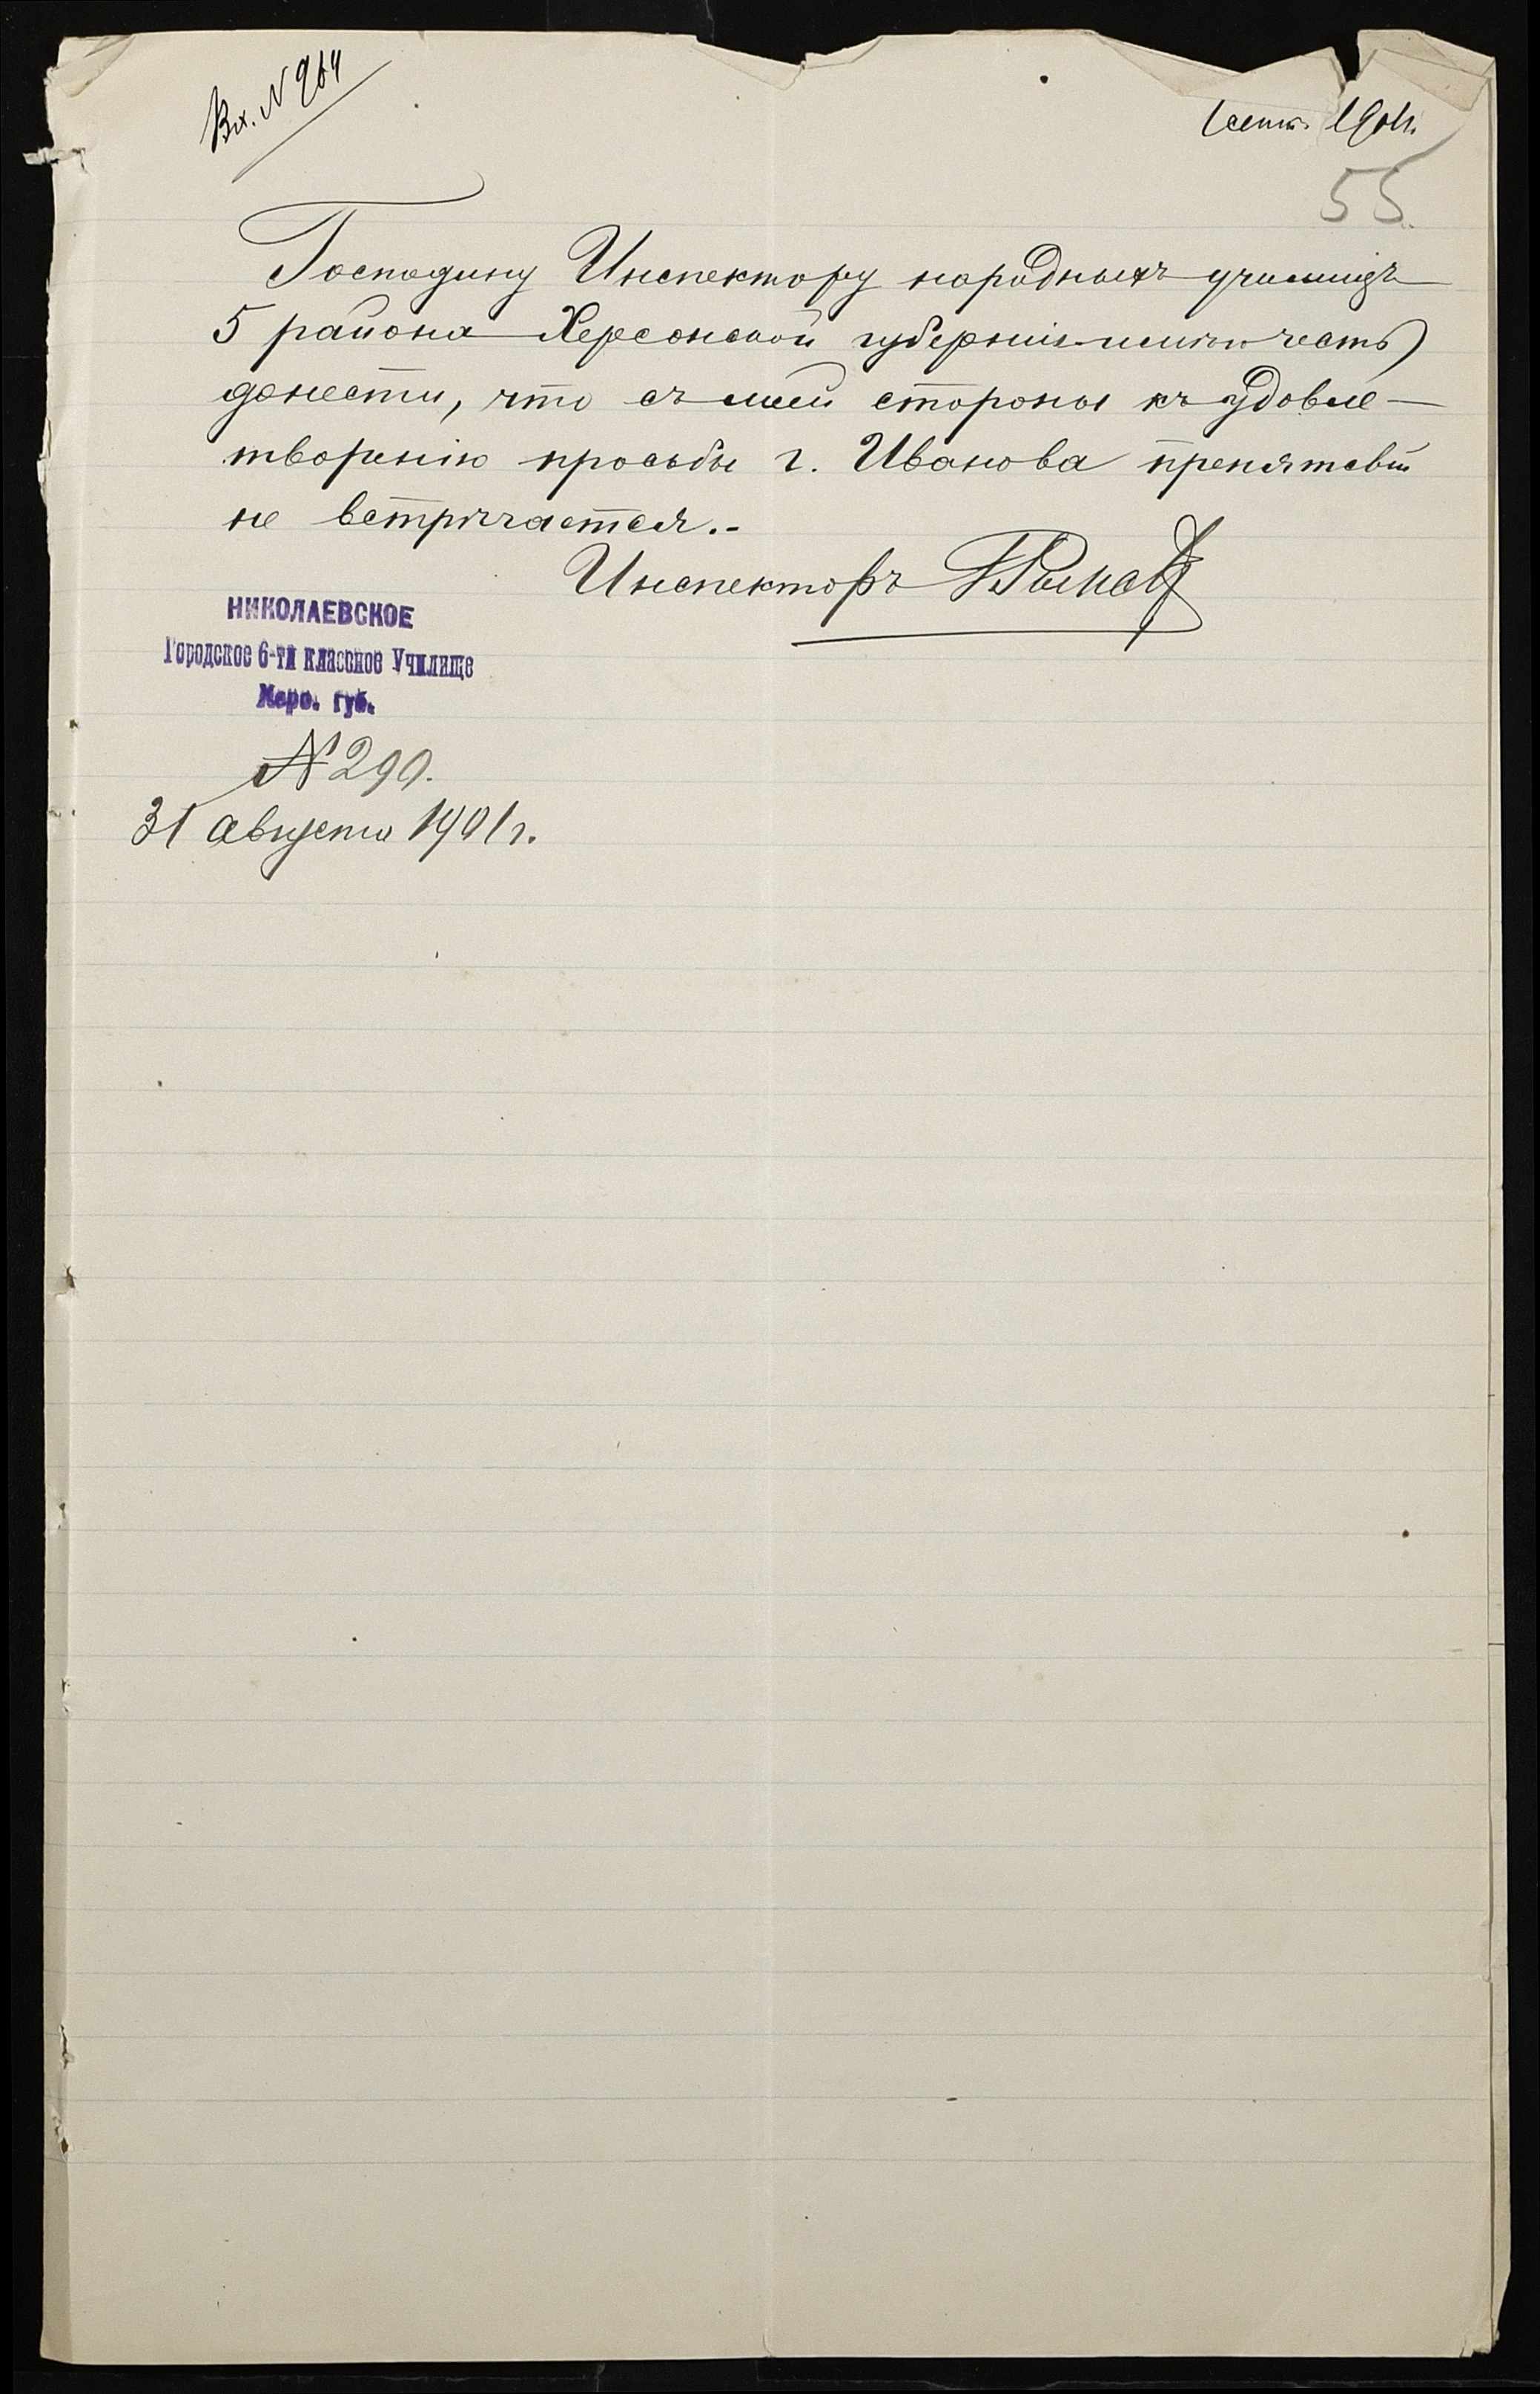 Вх. N 964
1 сент. 1901 г.
55
Господину Инспектору народныхъ училищъ
5 района Херсонской губерніи имѣю честь
донести, что съ моей стороны къ удовле-
творенію просьбы г. Иванова препятствій
не встрѣчается.-
Инспекторъ
НИКОЛАЕВСКОЕ
Городское 6-ти классное Училище
Херс. губ.
№ 290.
31 августа 1901 г.